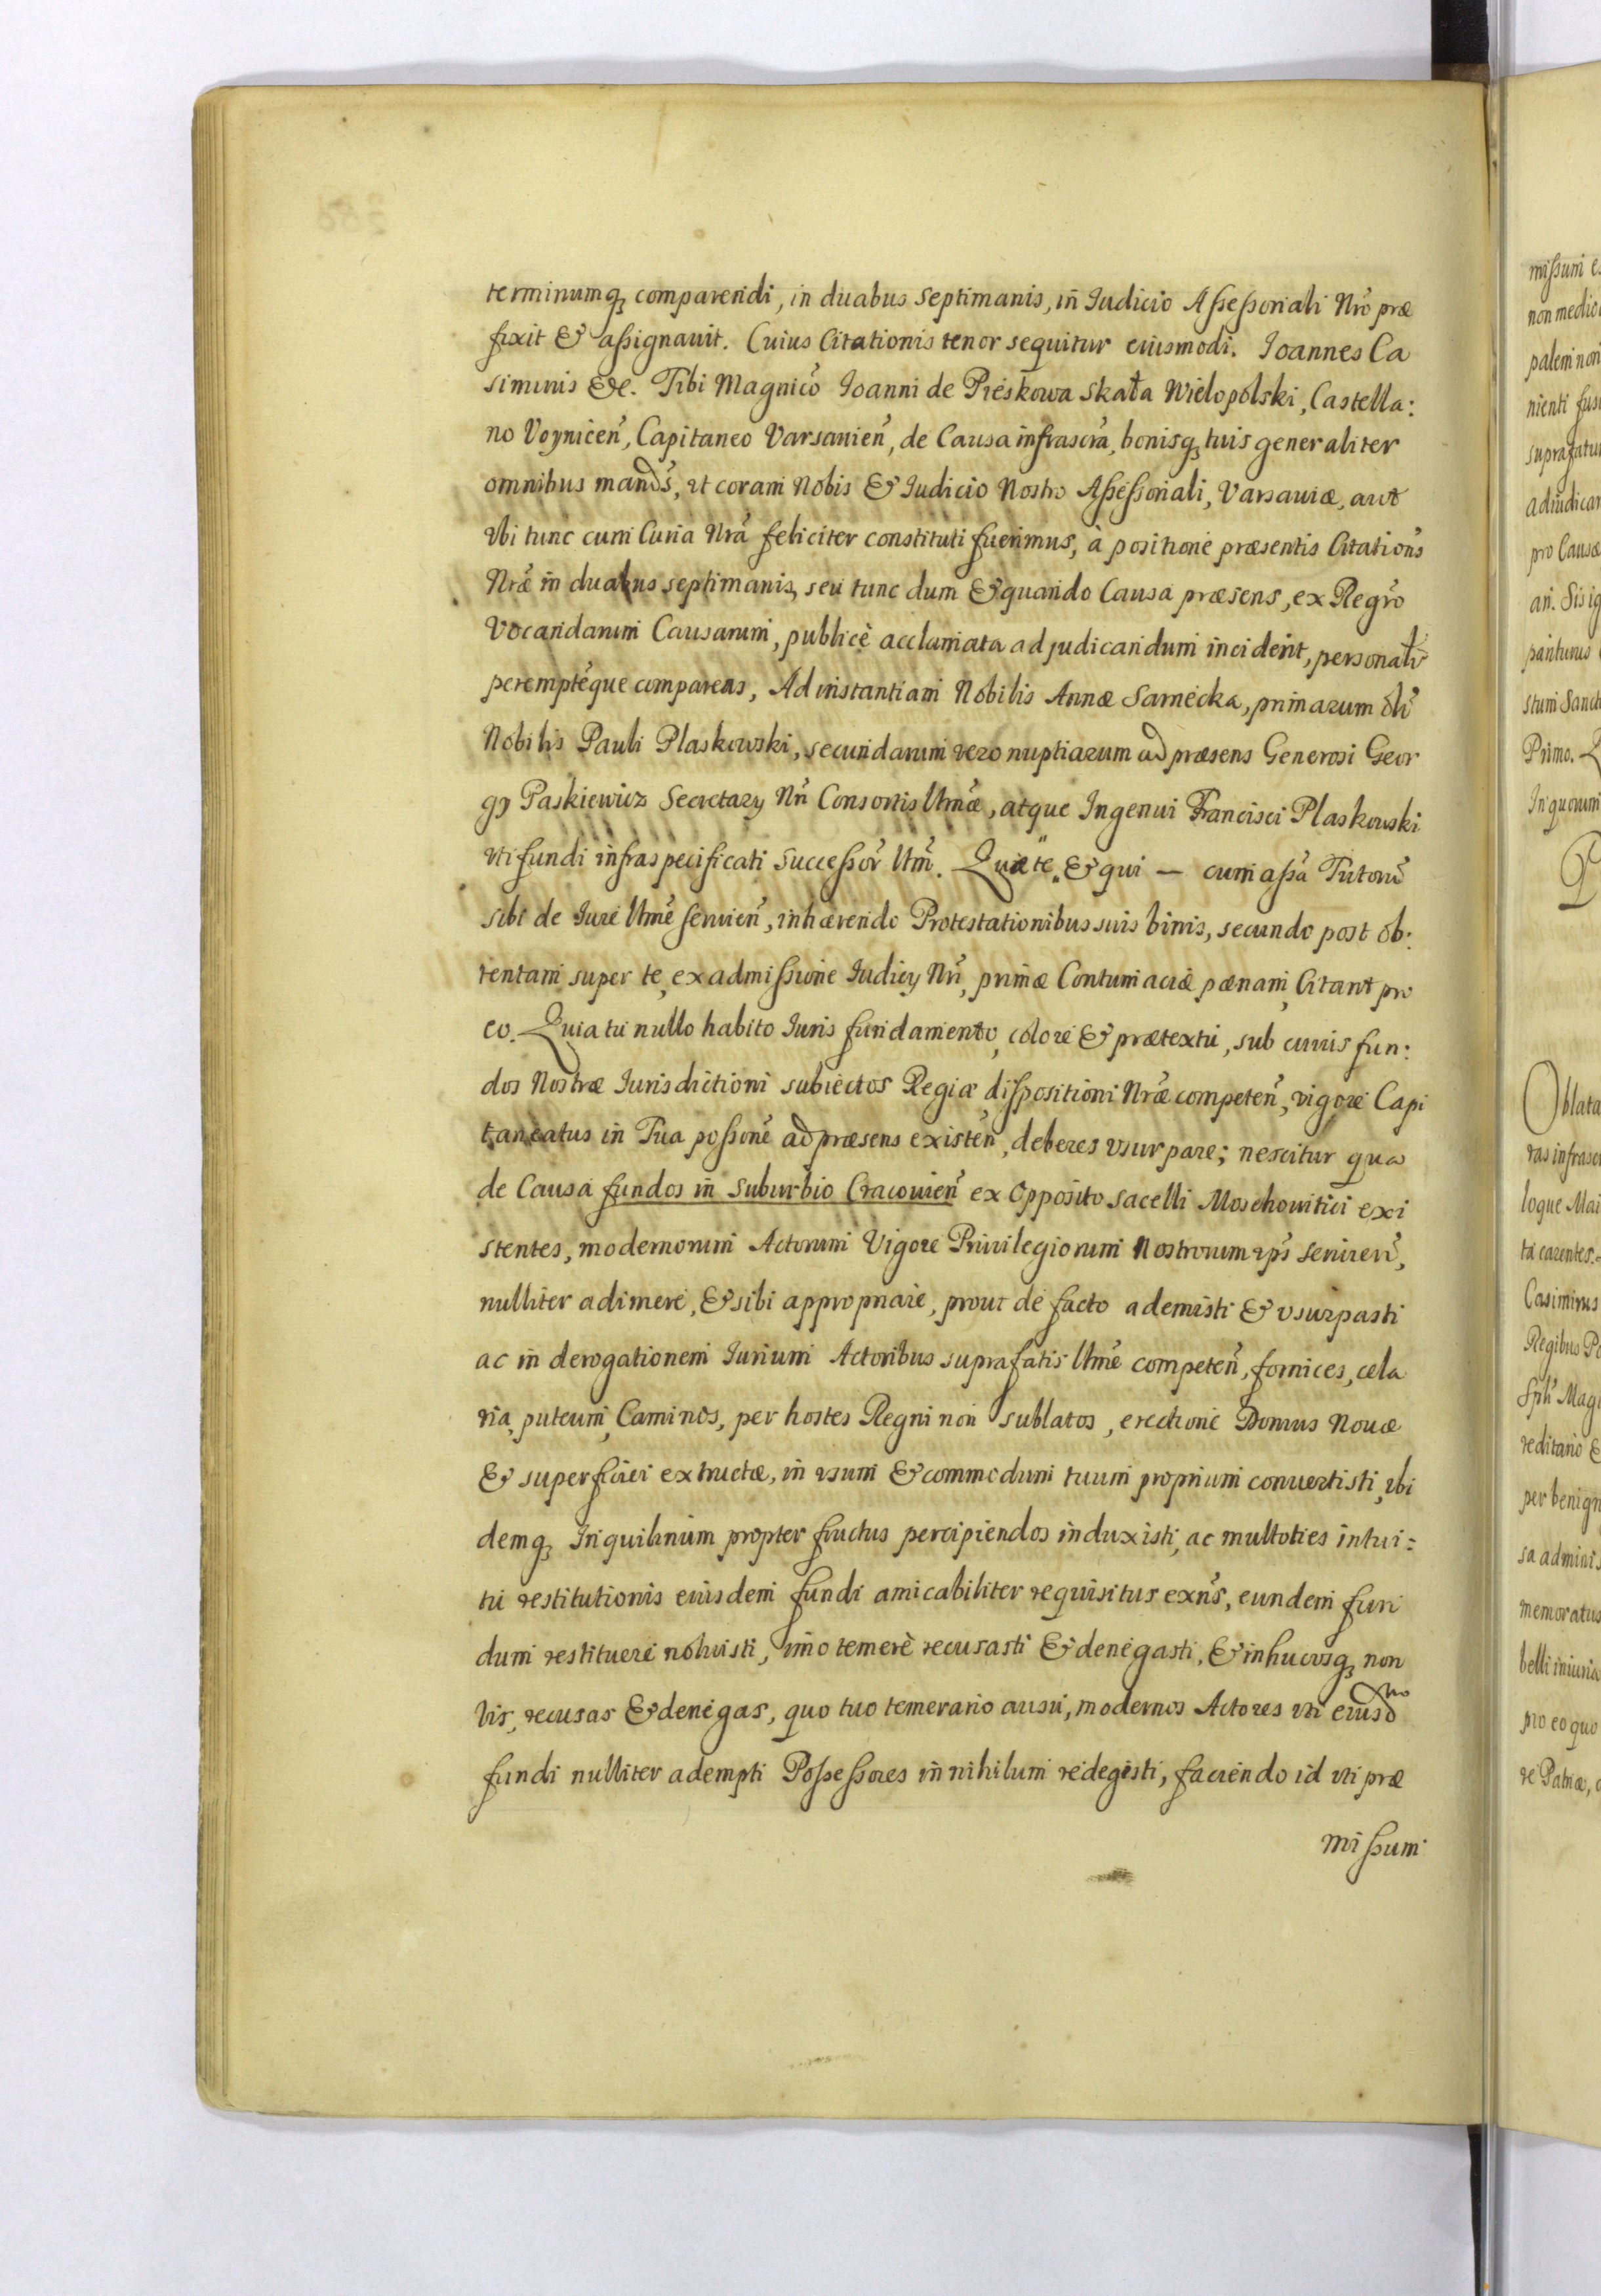 terminumq₃ comparendi, in duabus septimanis, in Iudicio Assessoriali Nrõ præ
fixit & assignauit. Cuius Citationis tenor sequitur eiusmodi. Ioannes Ca
simirus &c. Tibi Magnicõ Ioanni de Pieskowa Skała Wielopolski, Castella:
no Voyniceñ, Capitaneo Varsauieñ, de Causa infrascrã, bonisq₃ tuis generaliter
omnibus mandũs, ut coram Nobis & Iudicio Nostro Assessoriali, Varsauiæ, aut
vbi tunc cum Curia Nrã feliciter constituti fuerimus, à positione præsentis Citationis
Nræ̃ in duabus septimanis, seu tunc dum & quando Causa præsens, ex Regrõ
Vocandarum Causarum, publicè acclamata ad judicandum inciderit, personalĩr
peremptẽque compareas, Ad instantiam Nobilis Annæ Sarnecka, primarum olĩ
Nobilis Pauli Plaskowski, secundarum vero nuptiarum ad præsens Generosi Geor
gÿ Paskiewicz Secretarÿ Nrĩ Consortis Ltmæ̃, atque Ingenui Francisci Plaskowski
vti fundi infraspecificati Successor̃ Ltm̃. Quæ te „ & qui — cum assã Tutorũ
sibi de Iure Ltmẽ seruieñ, inhærendo Protestationibus suis binis, secundo post ob:
tentam super te, ex admissione Iudicÿ Nrĩ, primæ Contumaciæ pœnam, Citant pro
eo. Quia tu nullo habito Iuris fundamento, colore & prætextu, sub cuius fun:
dos Nostræ Iurisdictioni subiectos Regiæ dispositioni Nræ̃ competeñ, vigore Capi
taneatus in Tua possonẽ ad præsens existeñ, deberes vsurpare; nescitur qua
de Causa fundos in Suburbio Cracouieñ ex Opposito sacelli Moschouitici exi
stentes, modernorum Actorum Vigore Priuilegiorum Nostrorum ip̃s seruieñ,
nulliter adimere, & sibi appropriare, prout de facto ademisti & vsurpasti
ac in derogationem Iurium Actoribus suprafatis Ltmẽ competeñ, fornices, cela
ria, puteum, Caminos, per hostes Regni non sublatos, erectione Domus Nouæ
& superficiei extructæ, in vsum & commodum tuum proprium conuertisti, ibi
demq₃ Inquilinum propter fructus percipiendos induxisti, ac multoties intui:
tu restitutionis eiusdem fundi amicabiliter requisitus exñs, eundem fun
dum restituere noluisti, imo temerè recusasti & denegasti, & inhucusq₃ non
vis, recusas & denegas, quo tuo temerario ausu, modernos Actores vti eiusd
fundi nulliter adempti Possessores in nihilum redegisti, faciendo id vti præ
missum